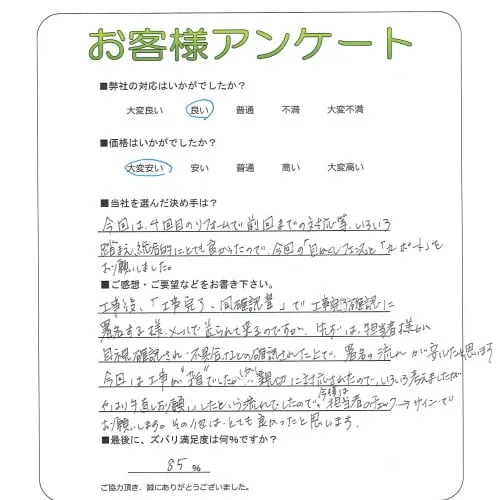 お客様アンケート
■弊社の対応はいかがでしたか?
大変良い 良い 普通 不満 大変不満
■価格はいかがでしたか?
大変安い 安い 普通 高い 大変高い
■当社を選んだ決め手は?
今回は、4回目のリフォームで前回までの対応等、いろいろ
踏まえ総合的にとても良かったので、今回の「目かくしフェンス」と「カーポート」を
お願いしました。
■ご感想・ご要望などをお書き下さい。
工事後、「工事完了、同確認書」で工事完了確認に
署名する様、メールで送られて来るのですが、先ずは、担当者様が
目視確認され、不具合などの確認された上で、署名の流れが宜しいと思います
今回は工事が"雑"でしたが、親切に対応されたので、いろいろ考えましたが
やはり手直しお願いしたという流れでしたので、今後は担当者のチェック→サインで
お願いします。その他は、とても良かったと思います。
■最後に、ズバリ満足度は何%ですか?
85 %
ご協力頂き、誠にありがとうございました。